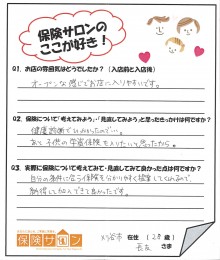 保険サロンの
ここが好き！
Q1. お店の雰囲気はどうでしたか？（入店前と入店後）
オープンな感じでお店に入りやすいです。
Q2. 保険について「考えてみよう」・「見直してみよう」と思ったきっかけは何ですか？
健康診断でひっかかったので…。
あと子供の学資保険も入りたいって思ったから。
Q3. 実際に保険について考えてみて・見直してみて良かった点は何ですか？
自分の条件に合う保険を分かりやすく提案してくれるので、
納得して加入できて良かったです。
保険サロン
市 在住（28歳）
さま